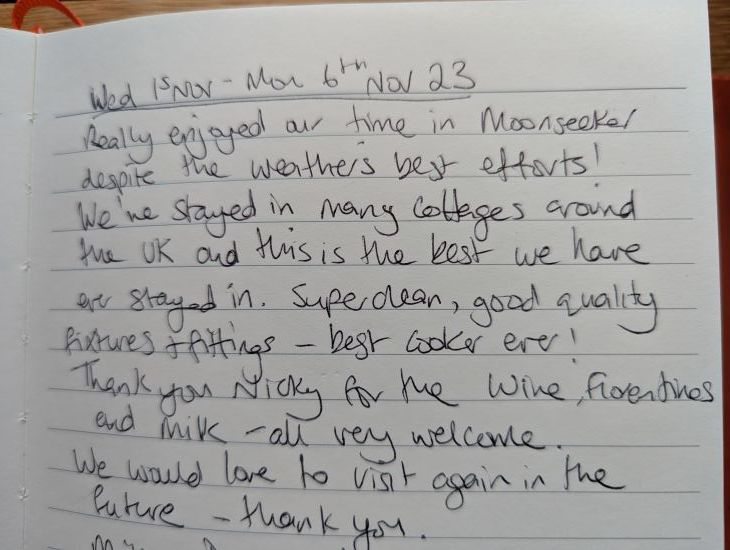 Wed 1st Nov - Mon 6th Nov 23
Really enjoyed our time in Moonseeker
despite the weather's best efforts!
We've stayed in many cottages around
the UK and this is the best we have
ever stayed in. Super clean, good quality
fixtures + fittings - best cooker ever!
Thank you Nicky for the wine, florentines
and milk - all very welcome.
We would love to visit again in the
future - thank you.